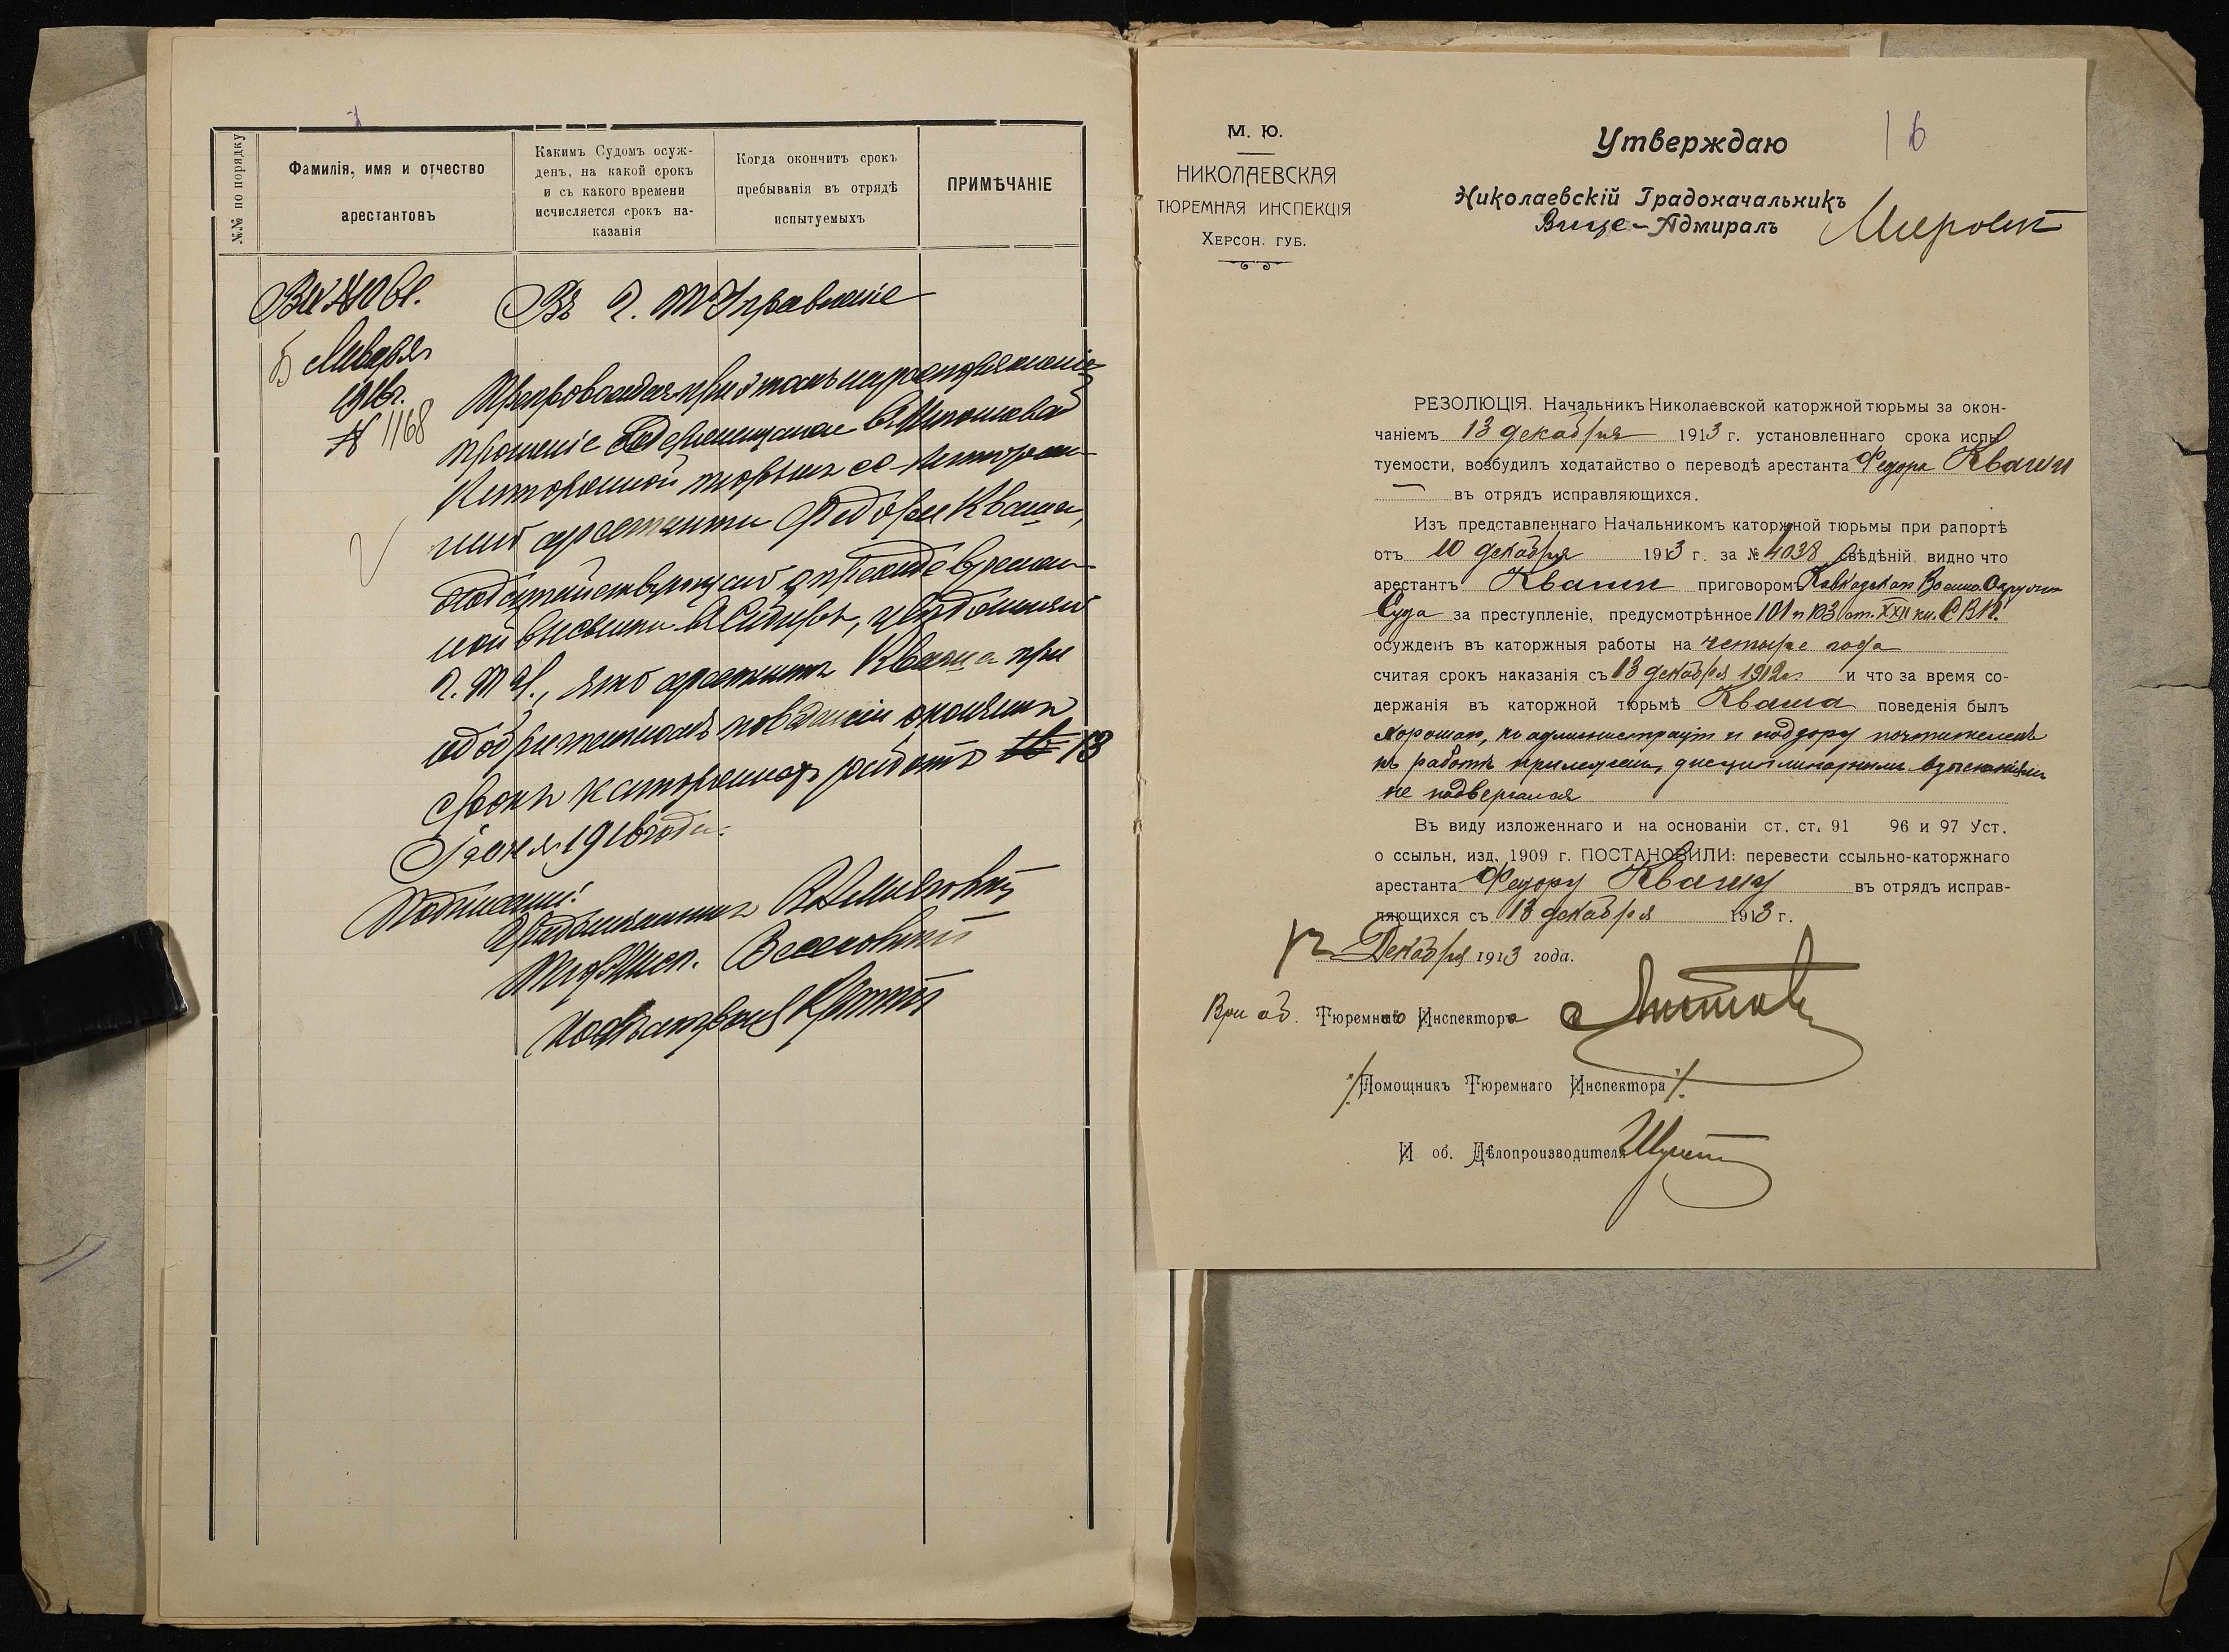 №№ по порядку
Фамилія, имя и отчество
арестантовъ
Какимъ Судомъ осуж-
денъ, на какой срокъ
и съ какого времени
исчисляется срокъ на-
казанія
Когда окончитъ срокъ
пребыванія въ отрядѣ
испытуемыхъ
ПРИМѢЧАНІЕ
Въ Г. Т. Управленіе
1916г.
№ 1168
Препровождая при этомъ на распоряженіе
прошеніе содержащагося въ
Каторжной тюрьмѣ сс.-каторж-
наго арестанта Федора Кваша,
о
ной высылки въ Сибирь,
Г. Т. У., что арестантъ Кваша при
одобрительномъ поведеніи окончитъ
срокъ каторжныхъ работъ 13
1916 года.
Подписали:
Градоначальникъ
Тюр. Инсп.
М. Ю.
НИКОЛАЕВСКАЯ
ТЮРЕМНАЯ ИНСПЕКЦІЯ
ХЕРСОН. ГУБ.
16
Утверждаю
Николаевскій Градоначальникъ
Вице-Адмиралъ
РЕЗОЛЮЦІЯ. Начальникъ Николаевской каторжной тюрьмы за окон-
чаніемъ 13 декабря 1913 г. установленнаго срока испы
туемости, возбудилъ ходатайство о переводѣ арестанта Федора Кваши
въ отрядъ исправляющихся.
Изъ представленнаго Начальникомъ каторжной тюрьмы при рапортѣ
отъ 10 декабря 1913 г. за № 4038 свѣдѣній видно что
арестантъ Кваша приговоромъ Кавказскаго Военно-Окружн
Суда за преступленіе, предусмотрѣнное 101 и 103 ст. XXII кн. С В П.
осужденъ въ каторжныя работы на четыре года
считая срокъ наказанія съ 13 декабря 1912 г. и что за время со-
держанія въ каторжной тюрьмѣ Кваша поведенія былъ
хорошаго, къ администраціи и надзору почтителенъ
къ работѣ прилеженъ, дисциплинарнымъ взысканіямъ
не подвергался
Въ виду изложеннаго и на основаніи ст. ст. 91 96 и 97 Уст.
о ссыльн. изд. 1909 г. ПОСТАНОВИЛИ: перевести ссыльно-каторжнаго
арестанта Федору Квашу въ отрядъ исправ-
ляющихся съ 13 декабря 1913 г.
12 Декабря 1913 года.
Врид об. Тюремнаго Инспектора
Помощникъ Тюремнаго Инспектора
И об. Дѣлопроизводителя